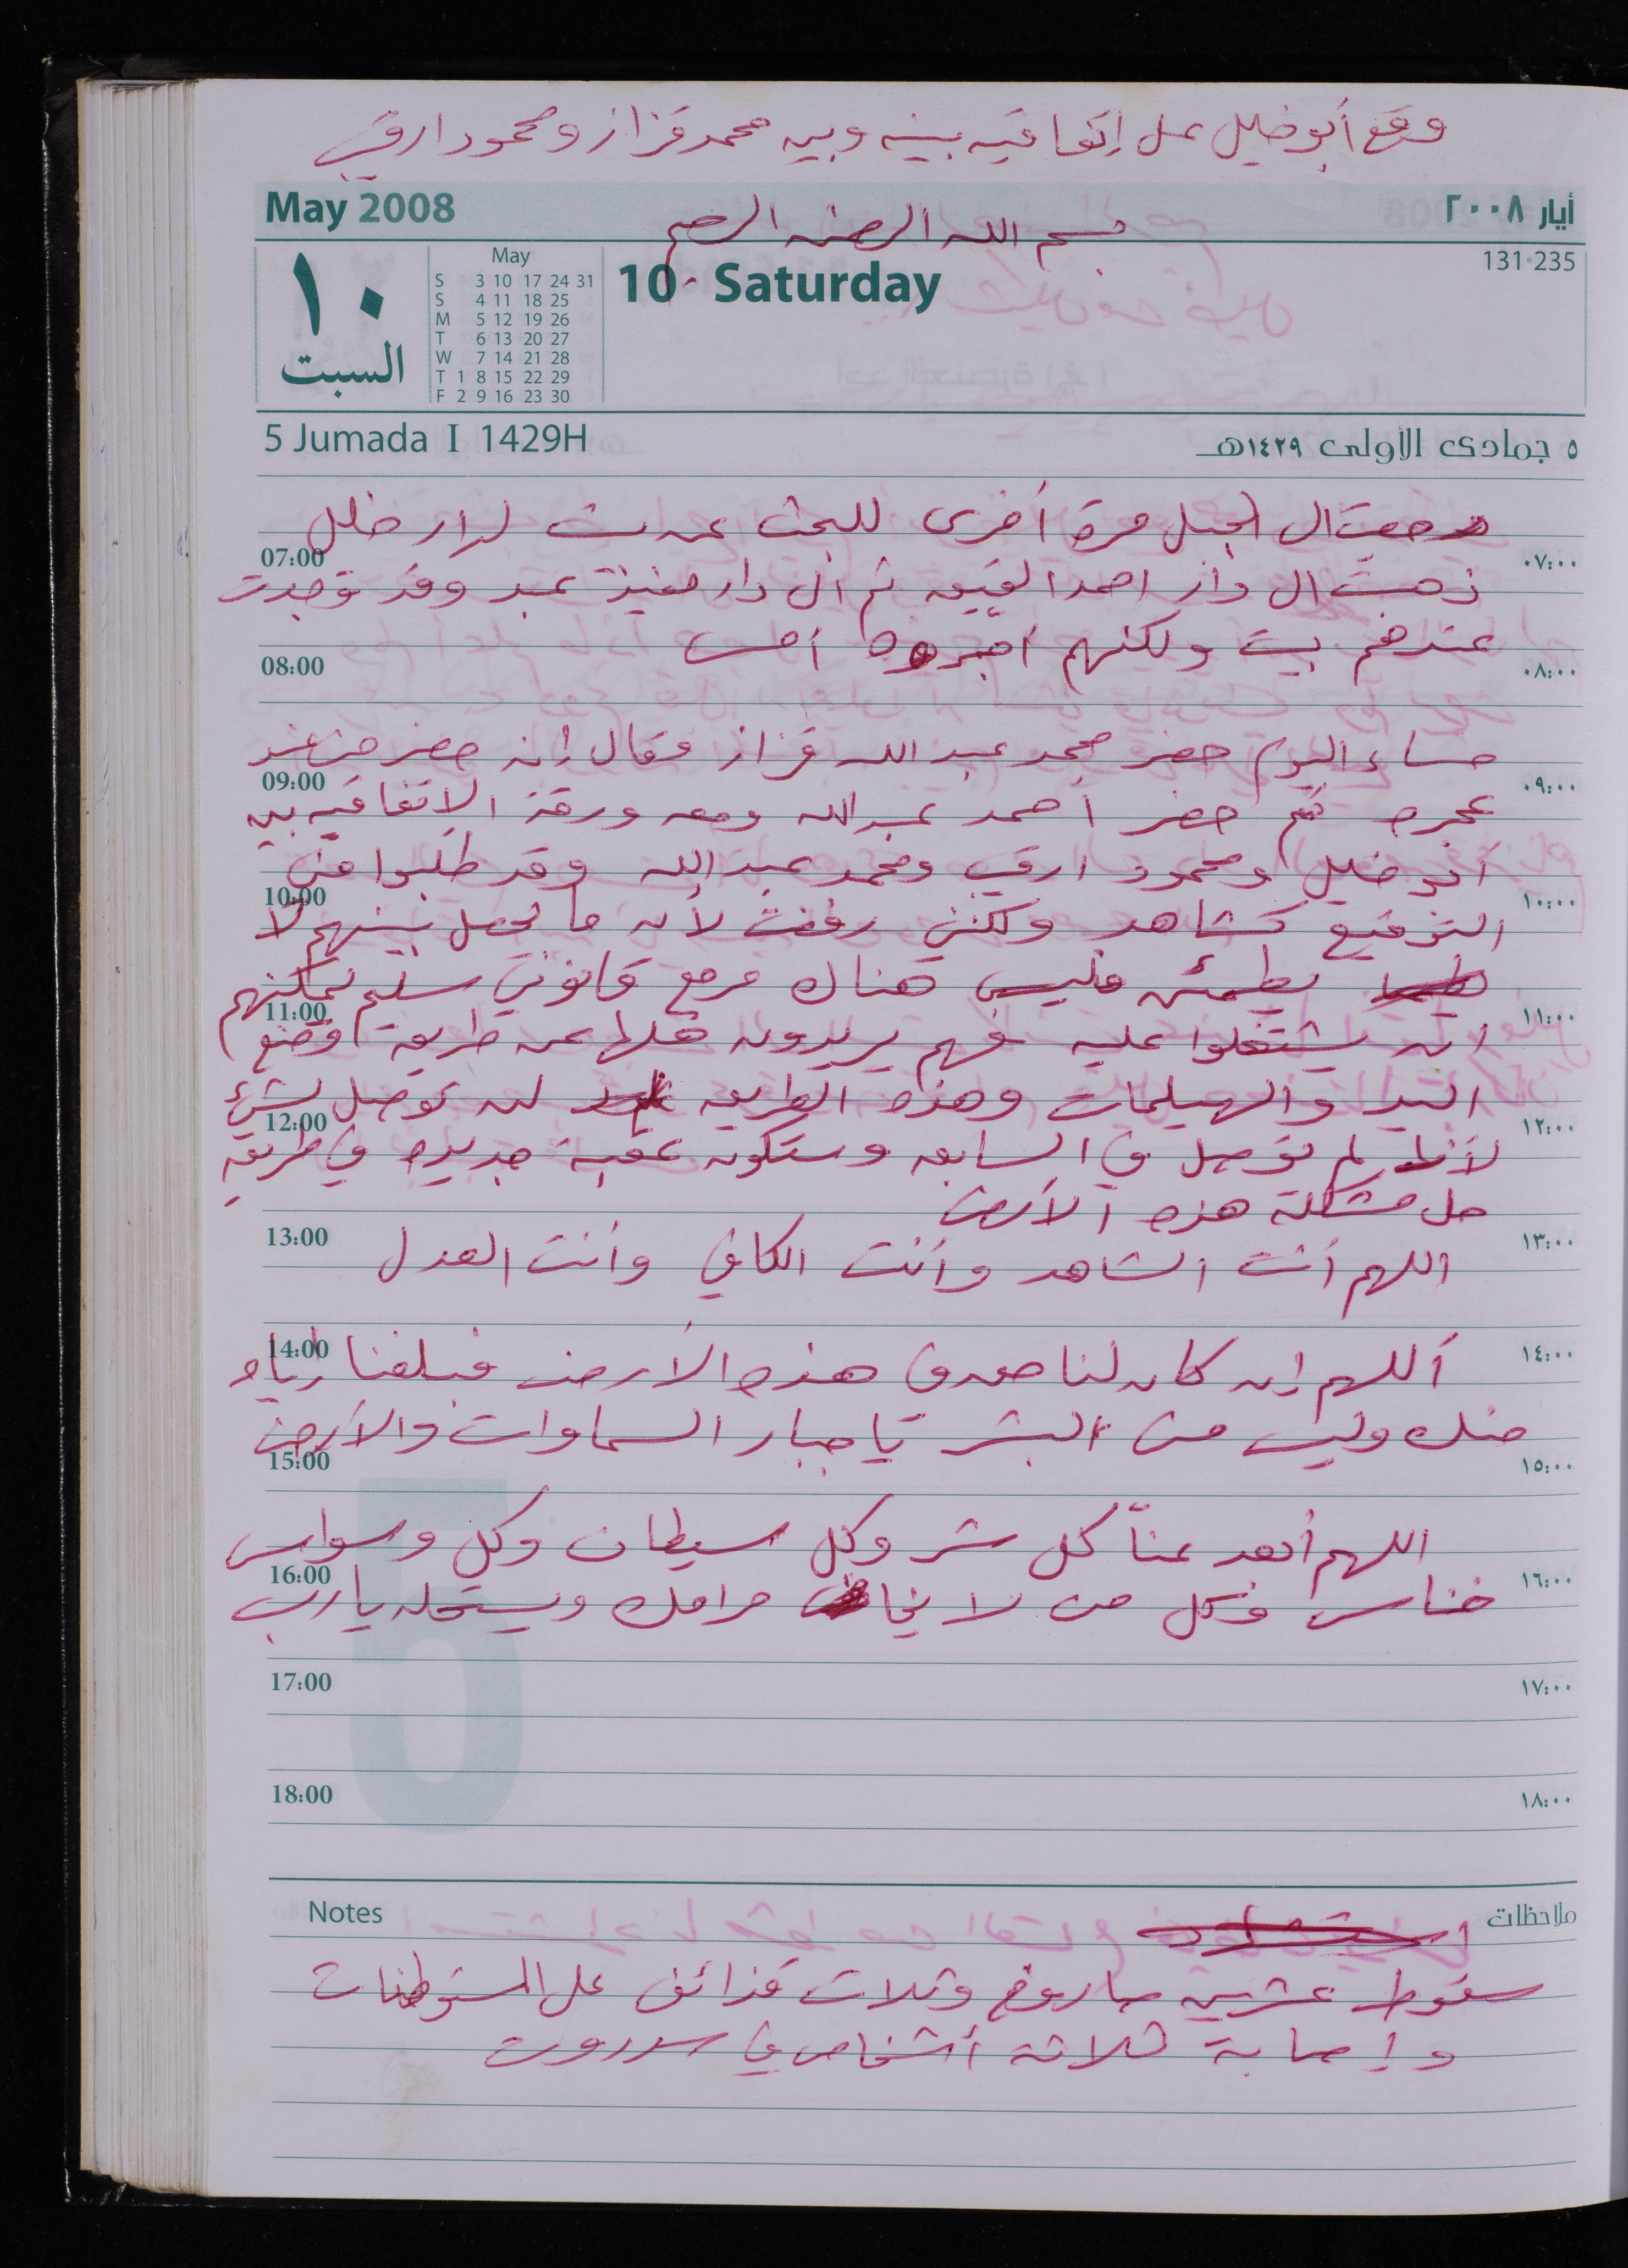 وقع أبو خليل على إتفاقيه بينه وبين محمد قزاز ومحمود ارقي
May 2008
أيار ٢٠٠٨
بسم الله الرحمن الرحيم
131·235
١٠
السبت
May
S 3 10 17 24 31
S 4 11 18 25
M 5 12 19 26
T 6 13 20 27
W 7 14 21 28
T 1 8 15 22 29
F 2 9 16 23 30
10 Saturday
5 Jumada I 1429H
٥ جمادى الأولى ١٤٢٩هـ
الى الجبل مرة أخرى للبحث عن بيت لدار خليل
07:00 ٠٧:٠٠
ذهبت الى دار احمد الفقيه ثم الى دار عبد وقد توجدت
عندهم بيت ولكنهم أجروه أمس
08:00 ٠٨:٠٠
مساء اليوم حضر محمد عبد الله قزاز وقال إنه حضر من عند
09:00 ٠٩:٠٠
ثم حضر أحمد عبد الله ومعه ورقة الإتفاقيه بين
أبو خليل ومحمود ارقي ومحمد عبد الله وقد طلبوا مني
10:00 ١٠:٠٠
التوقيع كشاهد ولكنني رفضت لأن ما يحصل بينهم لا
يطمئن فليس هناك مرجع قانوني سليم يمكنهم
11:00 ١١:٠٠
ان يشتغلوا عليه فهم يريدون حلها عن طريقة وضع
اليد والهيلمات وهذه الطريقه لن توصل لشيء
12:00 ١٢:٠٠
لأنها لم توصل في السابق وستكون عقبة جديده في طريقه
حل مشكلة هذه الأرض
13:00 ١٣:٠٠
اللهم أنت الشاهد وأنت الكافي وأنت العدل
14:00 ١٤:٠٠
أللهم إن كان لنا حق في هذه الأرض فبلغنا إياه
منك وليس من البشر يا جبار السماوات والأرض
15:00 ١٥:٠٠
اللهم أبعد عنّا كل شر وكل سيطان وكل وسواس
16:00 ١٦:٠٠
خناس وكل من لا يخاف حرامك ويستحله يا رب
17:00 ١٧:٠٠
18:00 ١٨:٠٠
Notes ملاحظات
سقوط عشرين صاروخ وثلاث قذائف على المستوطنات
وإصابة ثلاثة أشخاص في سدروت